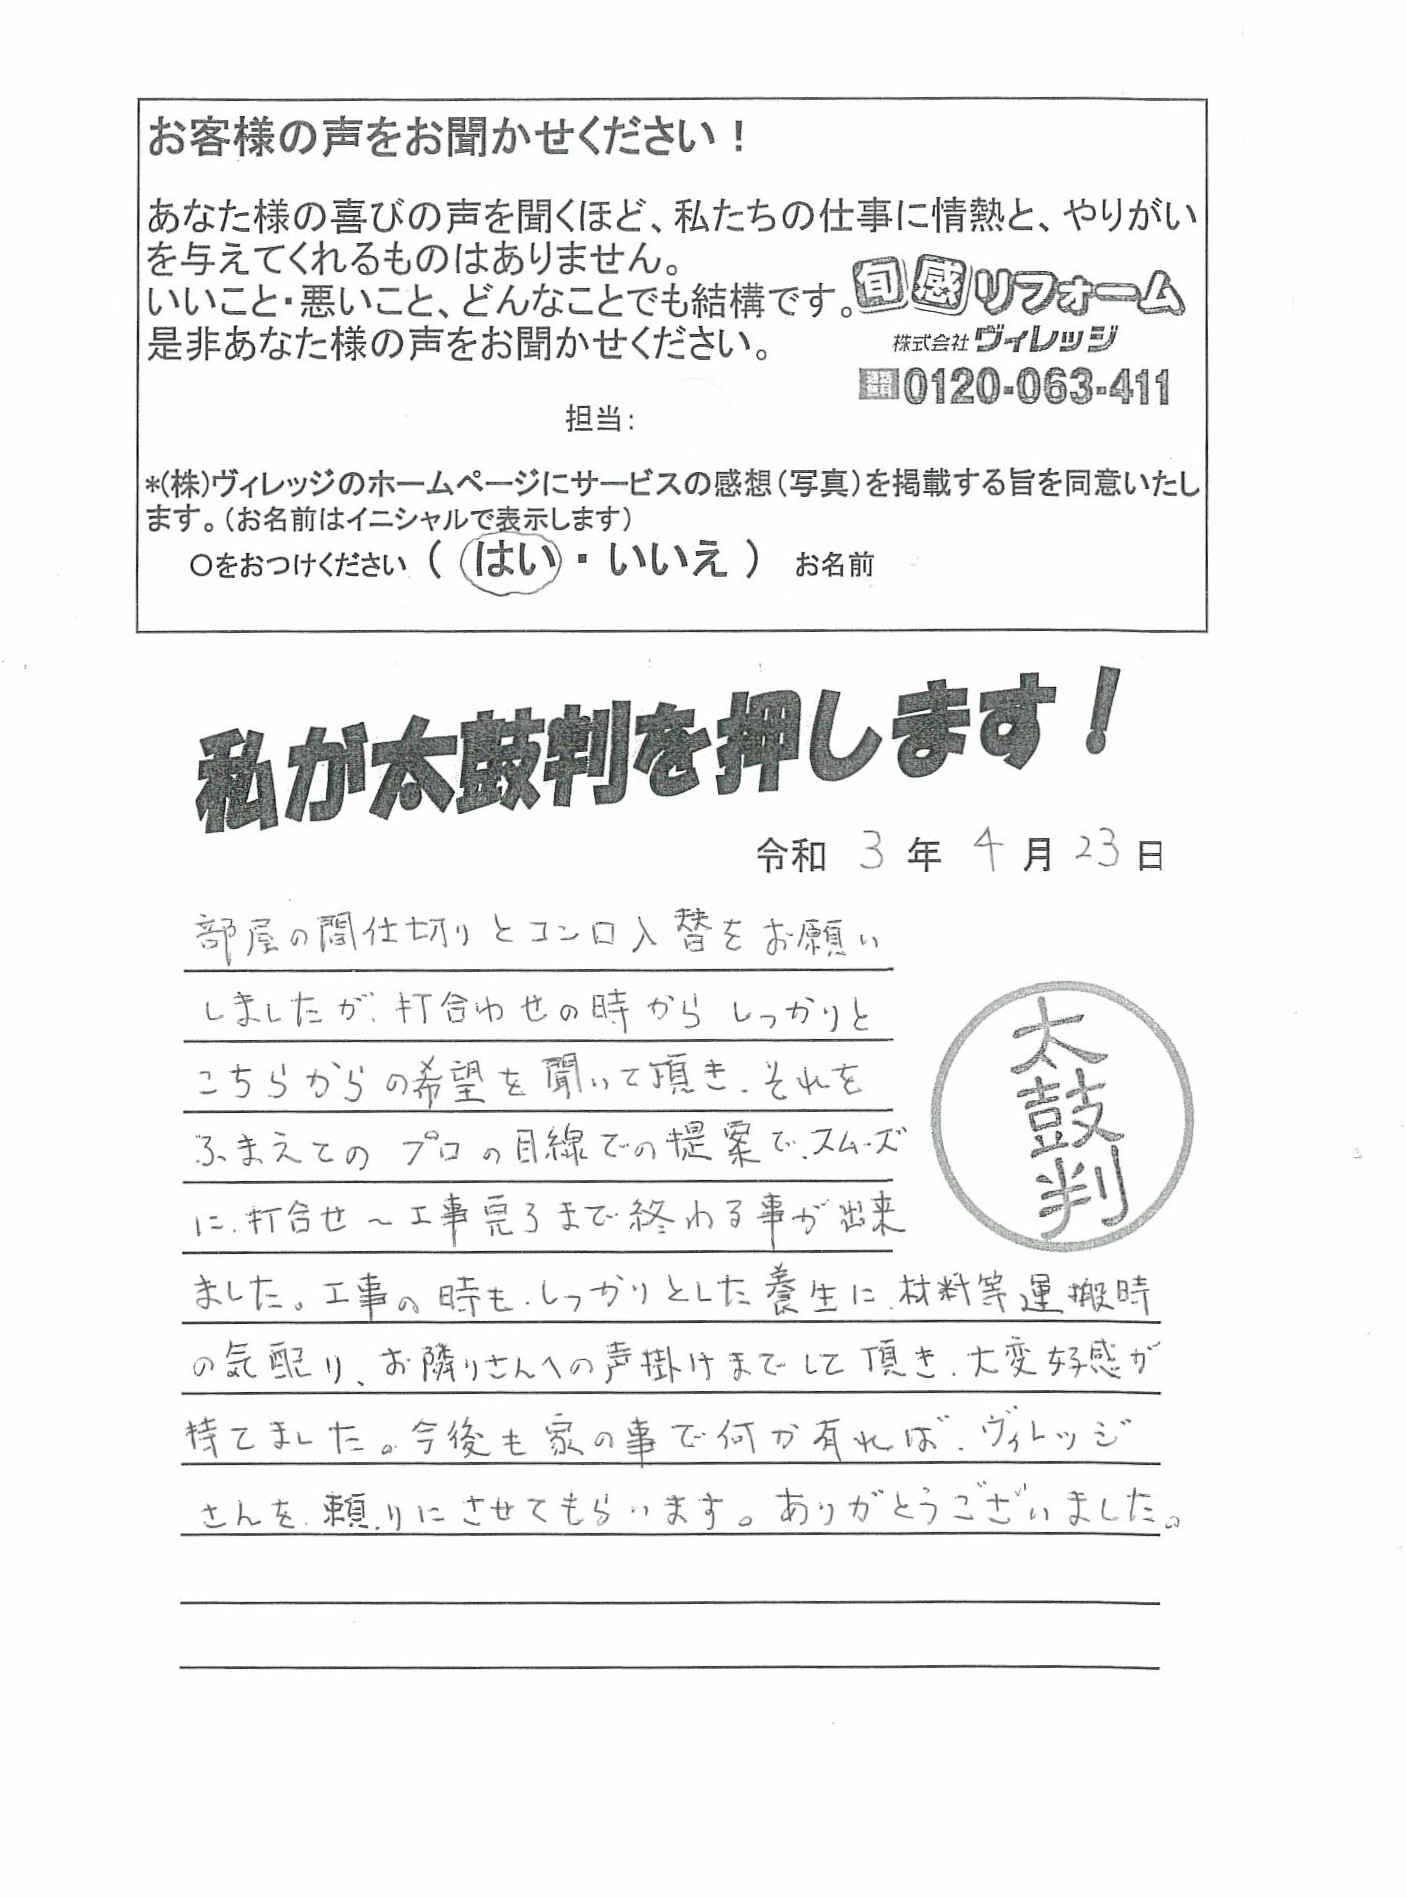 お客様の声をお聞かせください！
あなた様の喜びの声を聞くほど、私たちの仕事に情熱と、やりがい
を与えてくれるものはありません。
いいこと・悪いこと、どんなことでも結構です。
是非あなた様の声をお聞かせください。
旬感リフォーム
株式会社ヴィレッジ
通話無料0120-063-411
担当：
*（株）ヴィレッジのホームページにサービスの感想（写真）を掲載する旨を同意いたし
ます。（お名前はイニシャルで表示します）
○をおつけください（ はい ・ いいえ ） お名前
私が太鼓判を押します！
令和 3 年 4 月 23 日
部屋の間仕切りとコンロ入替をお願い
しましたが、打合わせの時からしっかりと
こちらからの希望を聞いて頂き、それを
ふまえてのプロの目線での提案で、スムーズ
に、打合せ～工事完了まで終わる事が出来
ました。工事の時も、しっかりとした養生に、材料等運搬時
の気配り、お隣りさんへの声掛けまでして頂き、大変好感が
持てました。今後も家の事で何か有れば、ヴィレッジ
さんを、頼りにさせてもらいます。ありがとうございました。
太鼓判